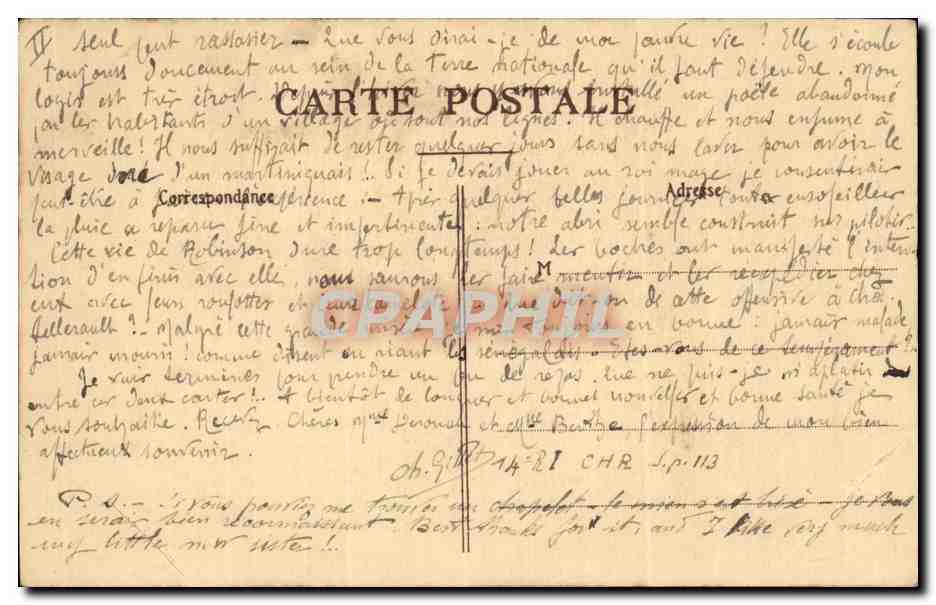 II seul peut rassasier – Que vous dirai-je de ma pauvre vie ? Elle s'écoule
toujours doucement au sein de la terre nationale qu'il faut défendre. Mon
logis est très étroit. un poële abandonné
CARTE POSTALE
par les habitants d'un village où sont nos lignes. Il chauffe et nous enfume à
merveille ! Il nous suffirait de rester quelques jours sans nous laver pour avoir le
visage d'un martiniquais !. Si je devais jouer au roi mage je consentirais
Correspondance
Adresse
peut être à : – Après quelques belles journées ensoleillées
la pluie a reparu fine et impertinente : notre abri semble construit sur pilotis.
Cette vie de Robinson dure trop longtemps ! Les boches ont manifesté l'inten-
M
tion d'en finir avec elle, nous saurons les faire mentir et les réexpédier chez
eux avec leurs roupettes et que dit-on de cette offensive à Châ-
CPAPHIL
tellerault ? – Malgré cette grande misère en bonne : jamais malade,
jamais mourri ! comme disent en riant les sénégalais. Êtes-vous de ce tempérament ?
Je vais terminer pour prendre un peu de repos. Que ne puis-je m'aplatir
entre ces deux cartes !.. A bientôt de longues et bonnes nouvelles et bonne santé je
vous souhaite. Recevez Chères Mme et Mlle Berthe, l'expression de mon bien
affectueux souvenir.
14e RI CHR S.p. 113
P.S. – Si vous pouviez me trouver un chapelet – le mien s'est brisé – je vous
en serais bien reconnaissant. Best thanks for it, and I like very much
my little new sister !..